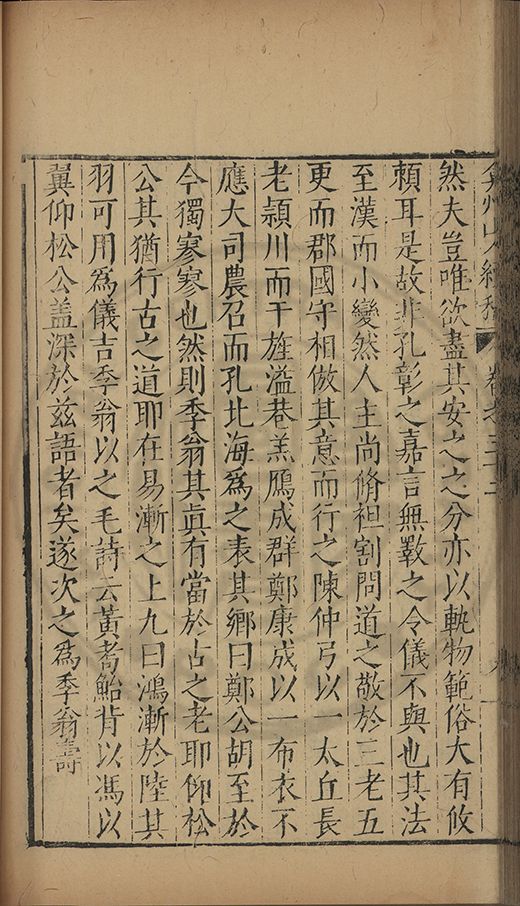 弇州山人續稿 卷之三十二
然夫豈唯欲盡其安之之分亦以軌物範俗大有攸
頼耳是故非孔彰之嘉言無斁之令儀不與也其法
至漢而小變然人主尚脩袒割問道之敬於三老五
更而郡國守相倣其意而行之陳仲弓以一太丘長
老潁川而干旌溢巷羔鴈成群鄭康成以一布衣不
應大司農召而孔北海爲之表其鄉曰鄭公胡至於
今獨寥寥也然則季翁其眞有當於古之老耶仰松
公其猶行古之道耶在易漸之上九曰鴻漸於陸其
羽可用爲儀吉季翁以之毛詩云黃耇鮐背以馮以
翼仰松公盖深於兹語者矣遂次之爲季翁壽